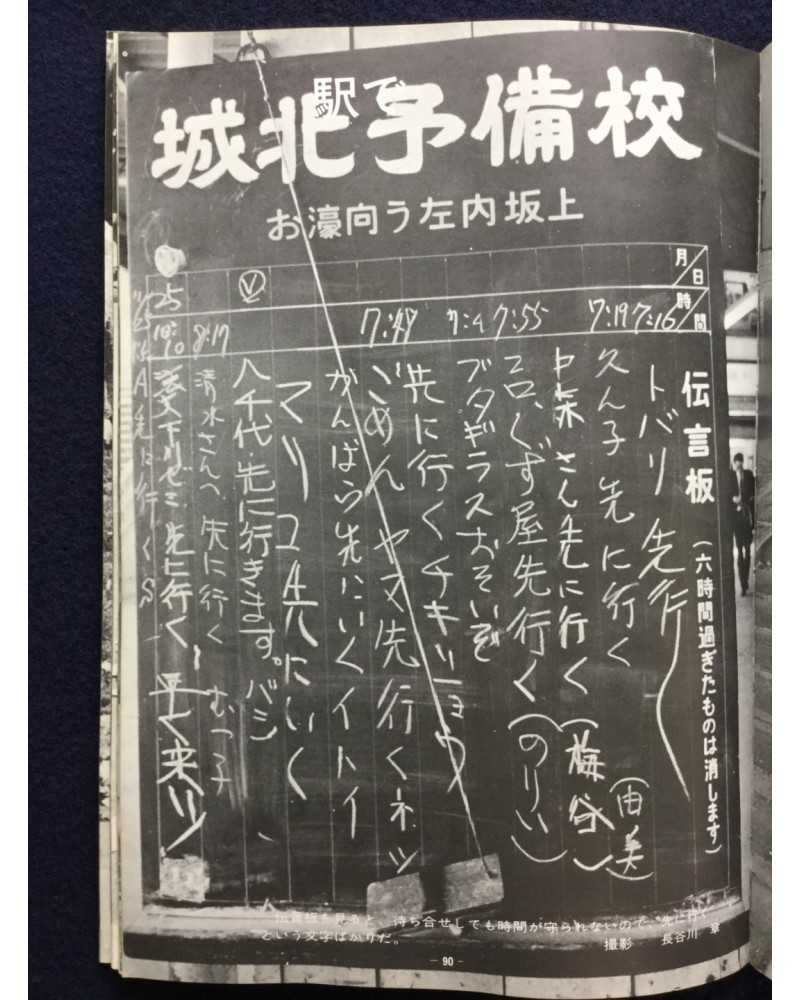 駅で
城北予備校
お濠向う左内坂上
月日
時間
7:16
7:19
7:55
7:49
8:17
10:10
25
伝言板(六時間過ぎたものは消します)
トバリ先行
久ん子先に行く(由美)
さん先に行く(梅谷)
くず屋先行く(のりい)
ブタギラスおそいぞ
先に行くチキショウ
ごめんヤマ先行くネッ
がんばら先にいくイトイ
マリコ先にいく
八千代先に行きます。バシ
清水さんへ先に行くむつ子
先に行く、早く来いッ
A先に行くS
伝言板を見ると、待ち合せしても時間が守られないので、“先に行く
という文字ばかりだ。
撮影 長谷川 章
— 90 —